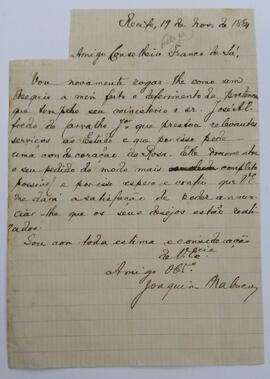 Recife, 19 de Nov. de 1884
Amigo Conselheiro Franco de Sá,
Vou novamente rogar-lhe como um
obsequio a mim feito o deferimento da pretenção
que tem pelo seu ministerio o sr. José Al-
fredo de Carvalho Jor que prestou relevantes
serviços ao Estado e que por isso pede
uma condecoração da Rosa. Elle documentou
o seu pedido do modo mais completo
possivel e por isso espero e confio que V. E.
me dará a satisfação de poder annun-
ciar-lhe que os seus desejos estão reali-
zados.
Sou com toda estima e consideração
de V. Excia
Amigo Obro
Joaquim Nabuco